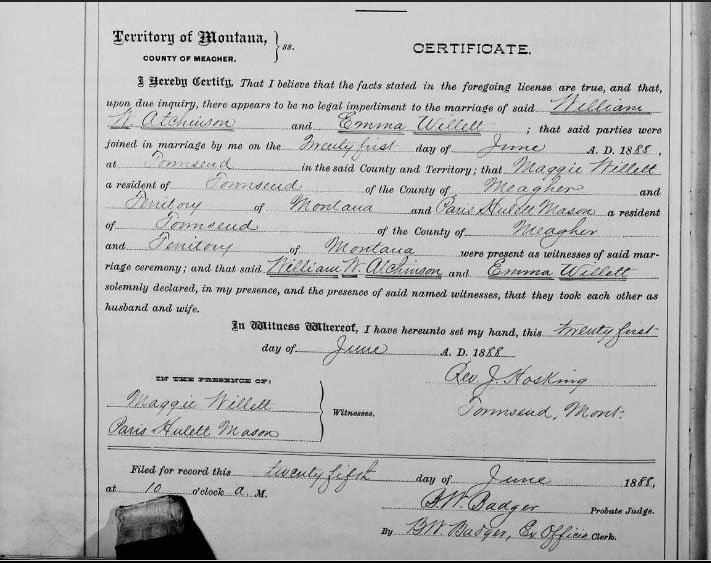 Territory of Montana, } ss.
COUNTY OF MEAGHER.
CERTIFICATE.
I Hereby Certify, That I believe that the facts stated in the foregoing license are true, and that,
upon due inquiry, there appears to be no legal impediment to the marriage of said William
W. Atchinson and Emma Willett ; that said parties were
joined in marriage by me on the Twenty first day of June A. D. 1888,
at Townsend in the said County and Territory; that Maggie Willett
a resident of Townsend of the County of Meagher and
Territory of Montana and Paris Hulett Mason a resident
of Townsend of the County of Meagher
and Territory of Montana were present as witnesses of said mar-
riage ceremony; and that said William W. Atchinson and Emma Willett
solemnly declared, in my presence, and the presence of said named witnesses, that they took each other as
husband and wife.
In Witness Whereof, I have hereunto set my hand, this twenty first
day of June A. D. 1888
Rev J. Hosking
Townsend, Mont.
IN THE PRESENCE OF:
Maggie Willett
Paris Hulett Mason
} Witnesses.
Filed for record this twenty fifth day of June 1888,
at 10 o'clock a. M.
B. W. Badger Probate Judge.
By B. W. Badger, Ex Officio Clerk.